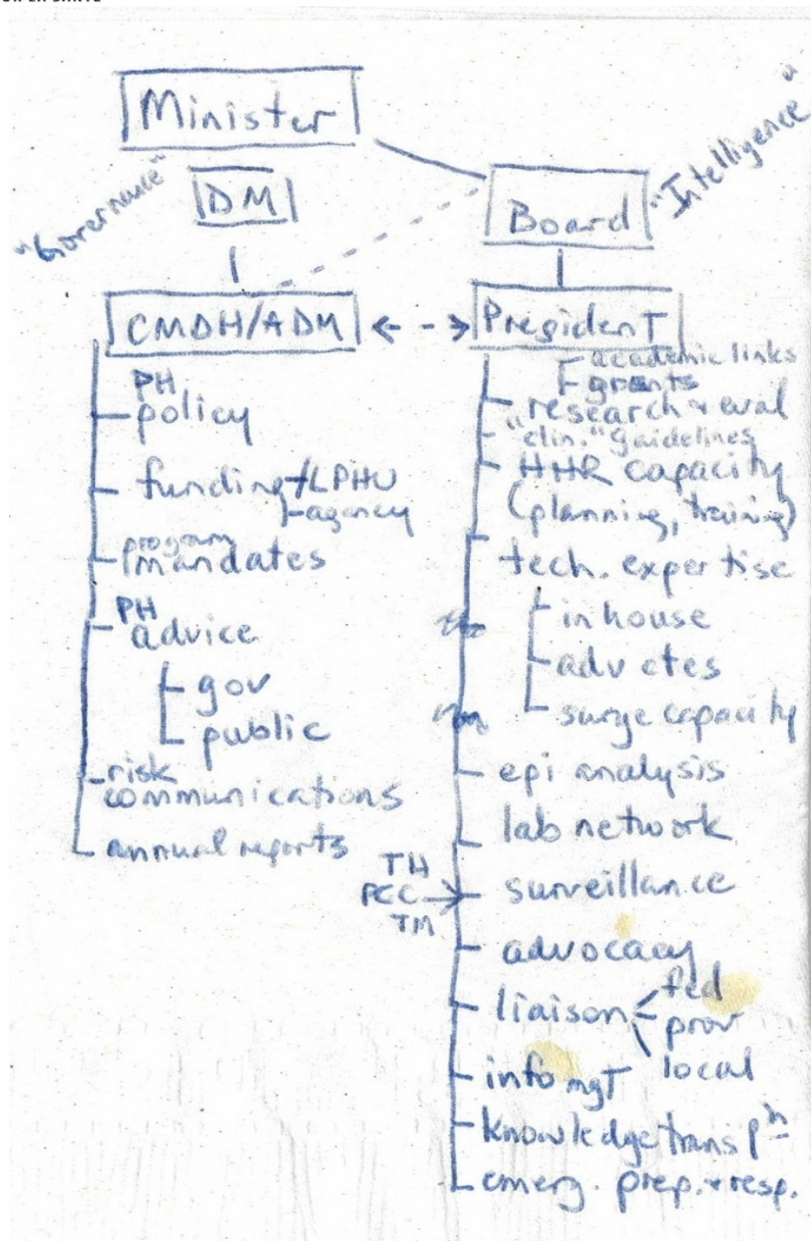 Minister
"Governance"
DM
Board
"Intelligence"
CMOH/ADM
President
PH
policy
funding
LPHU
agency
program
mandates
PH
advice
gov
public
risk
communications
annual reports
academic links
grants
research & eval
"clin." guidelines
HHR capacity
(planning, training)
tech. expertise
in house
adv ctes
surge capacity
epi analysis
lab network
TH
PCC
TM
surveillance
advocacy
liaison
fed
prov
local
info mgT
knowledge
emerg. prep. & resp.